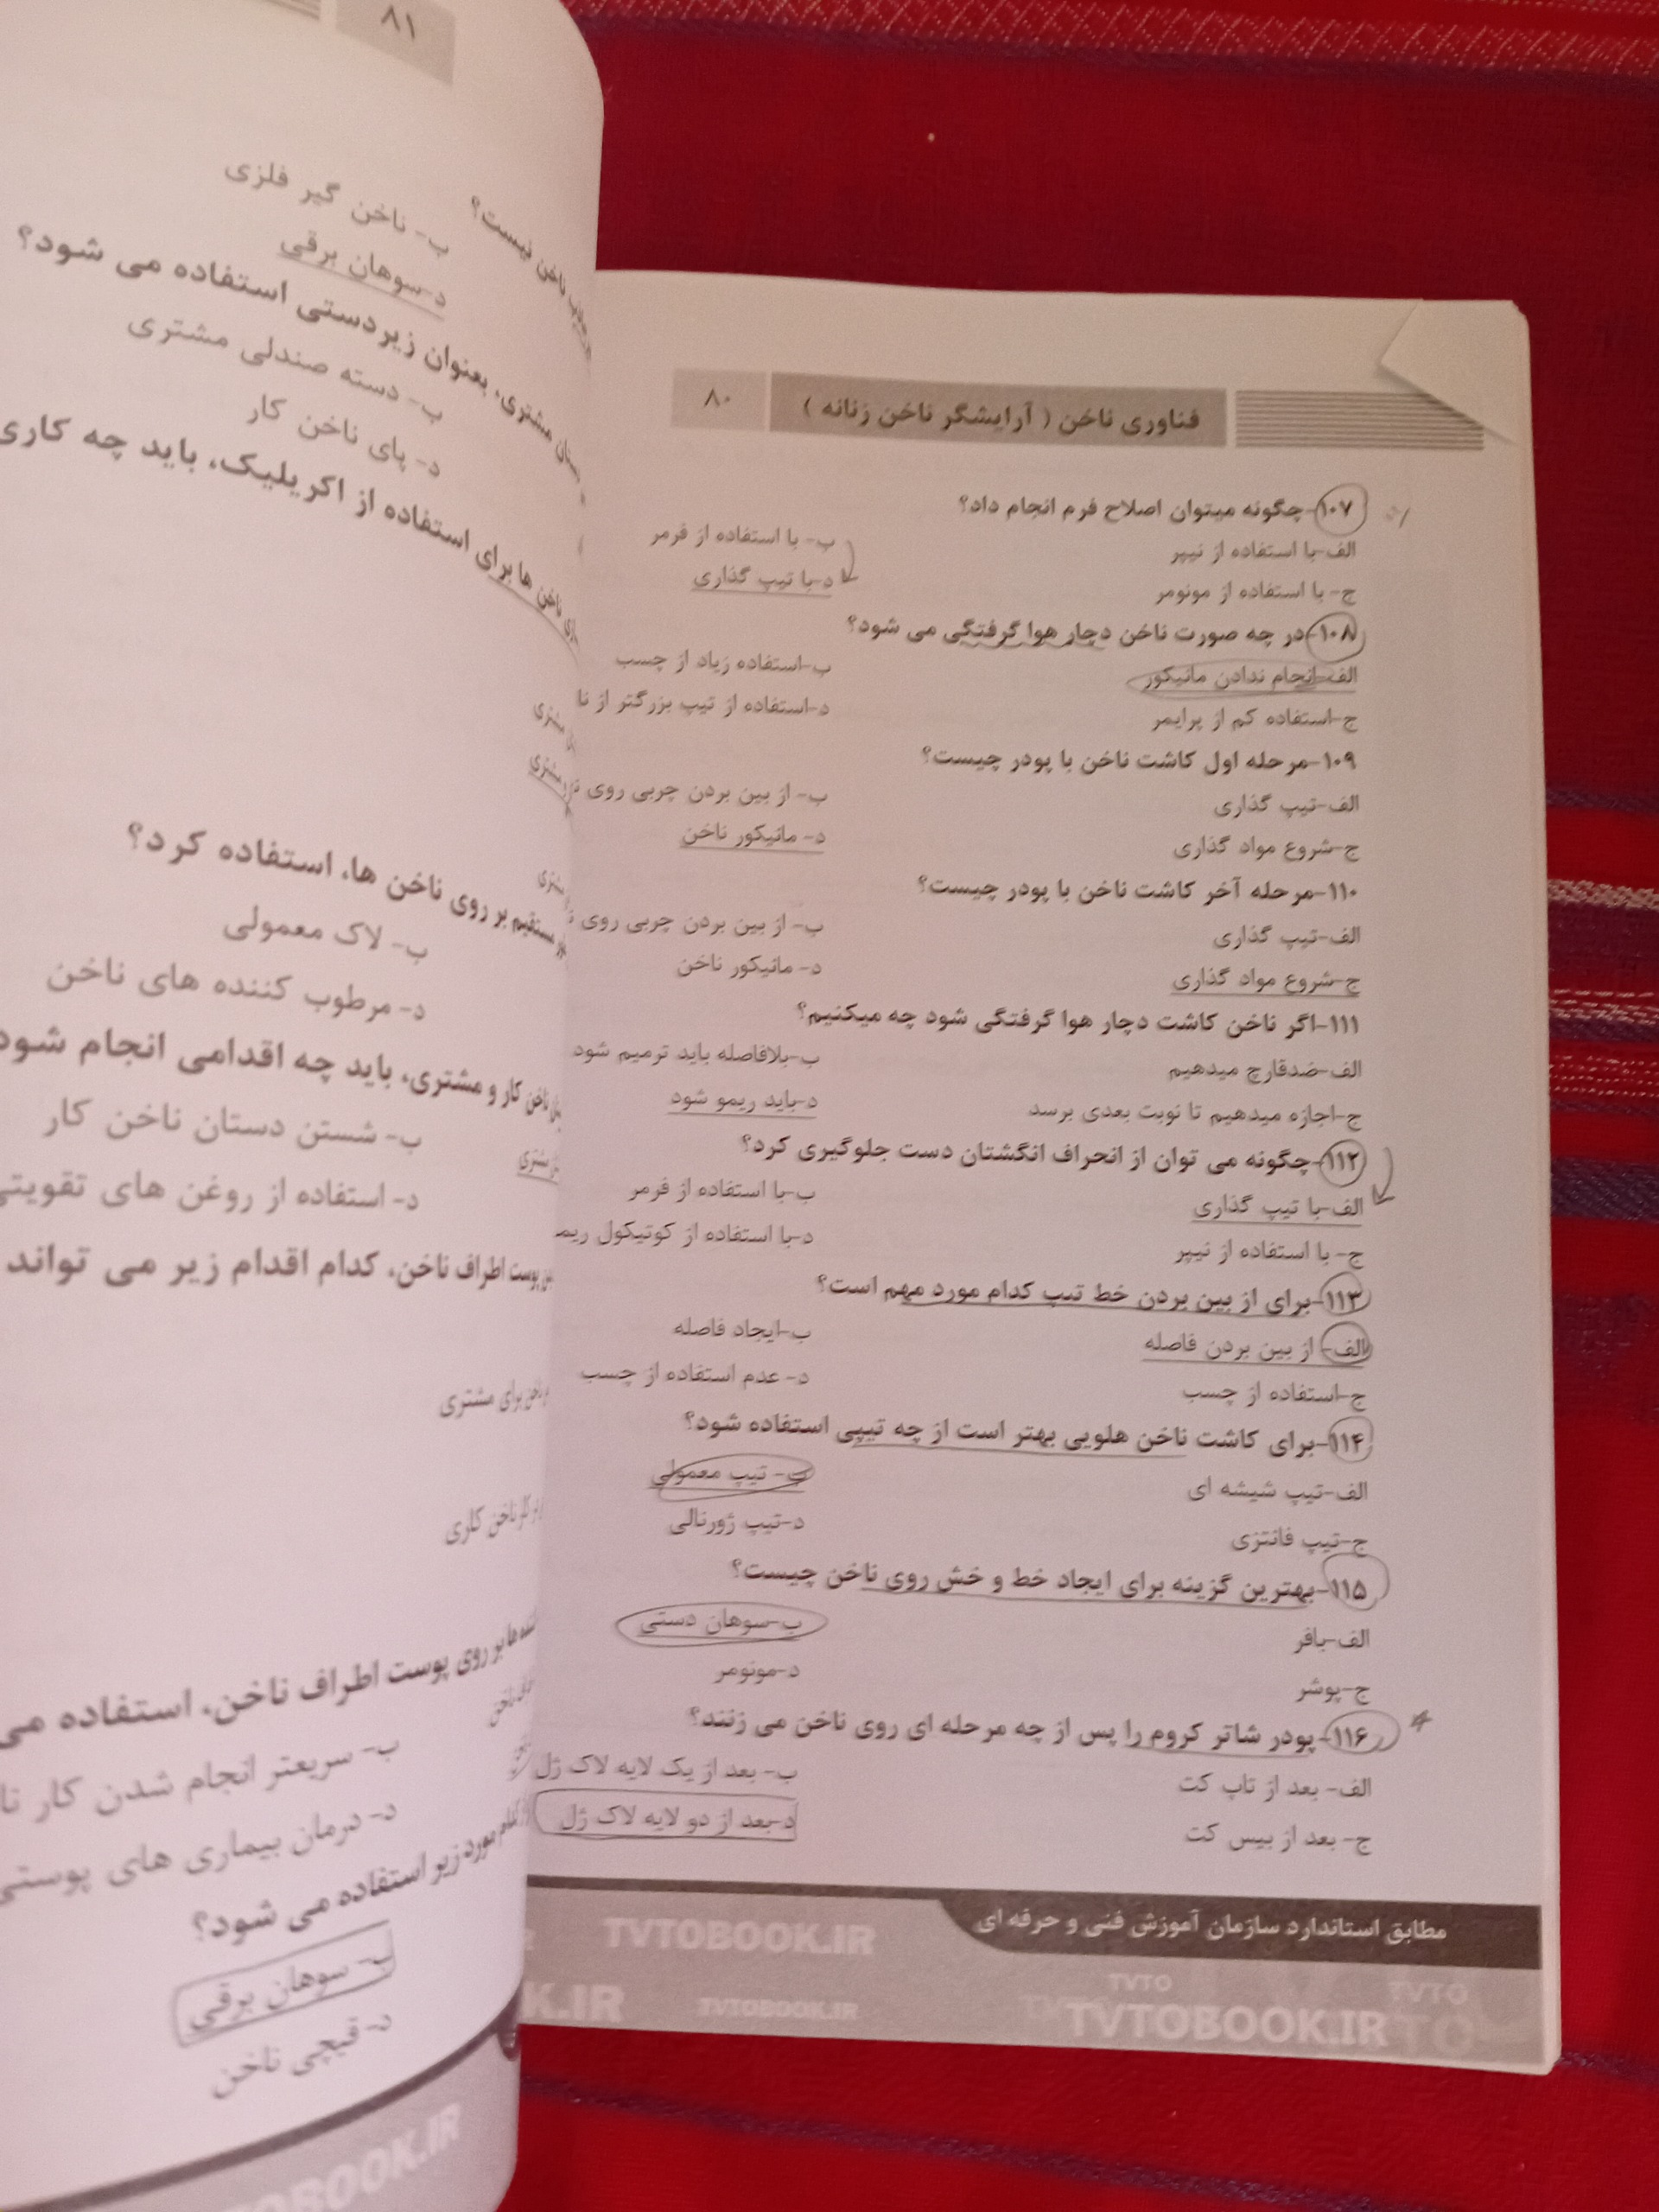 فناوری ناخن ( آرایشگر ناخن زنانه ) ۸۰
۱۰۷-چگونه میتوان اصلاح فرم انجام داد؟
الف-با استفاده از نیپر ب- با استفاده از فرمر
ج- با استفاده از مونومر د-با تیپ گذاری
۱۰۸-در چه صورت ناخن دچار هوا گرفتگی می شود؟
الف-انجام ندادن مانیکور ب-استفاده زیاد از چسب
ج-استفاده کم از پرایمر د-استفاده از تیپ بزرگتر از
۱۰۹-مرحله اول کاشت ناخن با پودر چیست؟
الف-تیپ گذاری ب- از بین بردن چربی روی
ج-شروع مواد گذاری د- مانیکور ناخن
۱۱۰-مرحله آخر کاشت ناخن با پودر چیست؟
الف-تیپ گذاری ب- از بین بردن چربی روی
ج-شروع مواد گذاری د- مانیکور ناخن
۱۱۱-اگر ناخن کاشت دچار هوا گرفتگی شود چه میکنیم؟
الف-ضدقارچ میدهیم ب-بلافاصله باید ترمیم شود
ج-اجازه میدهیم تا نوبت بعدی برسد د-باید ریمو شود
۱۱۲-چگونه می توان از انحراف انگشتان دست جلوگیری کرد؟
الف-با تیپ گذاری ب-با استفاده از فرمر
ج- با استفاده از نیپر د-با استفاده از کوتیکول
۱۱۳-برای از بین بردن خط تیپ کدام مورد مهم است؟
الف- از بین بردن فاصله ب-ایجاد فاصله
ج-استفاده از چسب د- عدم استفاده از چسب
۱۱۴-برای کاشت ناخن هلویی بهتر است از چه تیپی استفاده شود؟
الف-تیپ شیشه ای ب- تیپ معمولی
ج-تیپ فانتزی د-تیپ ژورنالی
۱۱۵-بهترین گزینه برای ایجاد خط و خش روی ناخن چیست؟
الف-بافر ب-سوهان دستی
ج-پوشر د-مونومر
۱۱۶-پودر شاتر کروم را پس از چه مرحله ای روی ناخن می زنند؟
الف- بعد از تاپ کت ب- بعد از یک لایه لاک ژل
ج- بعد از بیس کت د-بعد از دو لایه لاک ژل
مطابق استاندارد سازمان آموزش فنی و حرفه ای
TVTOBOOK.IR
TVTO TVTO
K.IR TVTOBOOK.IR TVTOBOOK.IR
۸۱
نیست؟
ب- ناخن گیر فلزی
د-سوهان برقی
مشتری، بعنوان زیردستی استفاده می شود؟
ب- دسته صندلی مشتری
د- پای ناخن کار
ناخن ها برای استفاده از اکریلیک، باید چه کاری
مشتری
مشتری
مستقیم بر روی ناخن ها، استفاده کرد؟
ب- لاک معمولی
د- مرطوب کننده های ناخن
ناخن کار و مشتری، باید چه اقدامی انجام شود
ب- شستن دستان ناخن کار
مشتری
د- استفاده از روغن های تقویتی
پوست اطراف ناخن، کدام اقدام زیر می تواند
ناخن برای مشتری
ناخن کاری
بر روی پوست اطراف ناخن، استفاده می
ب- سریعتر انجام شدن کار
د- درمان بیماری های پوستی
مورد زیر استفاده می شود؟
ب- سوهان برقی
د- قیچی ناخن
TOBOOK.IR